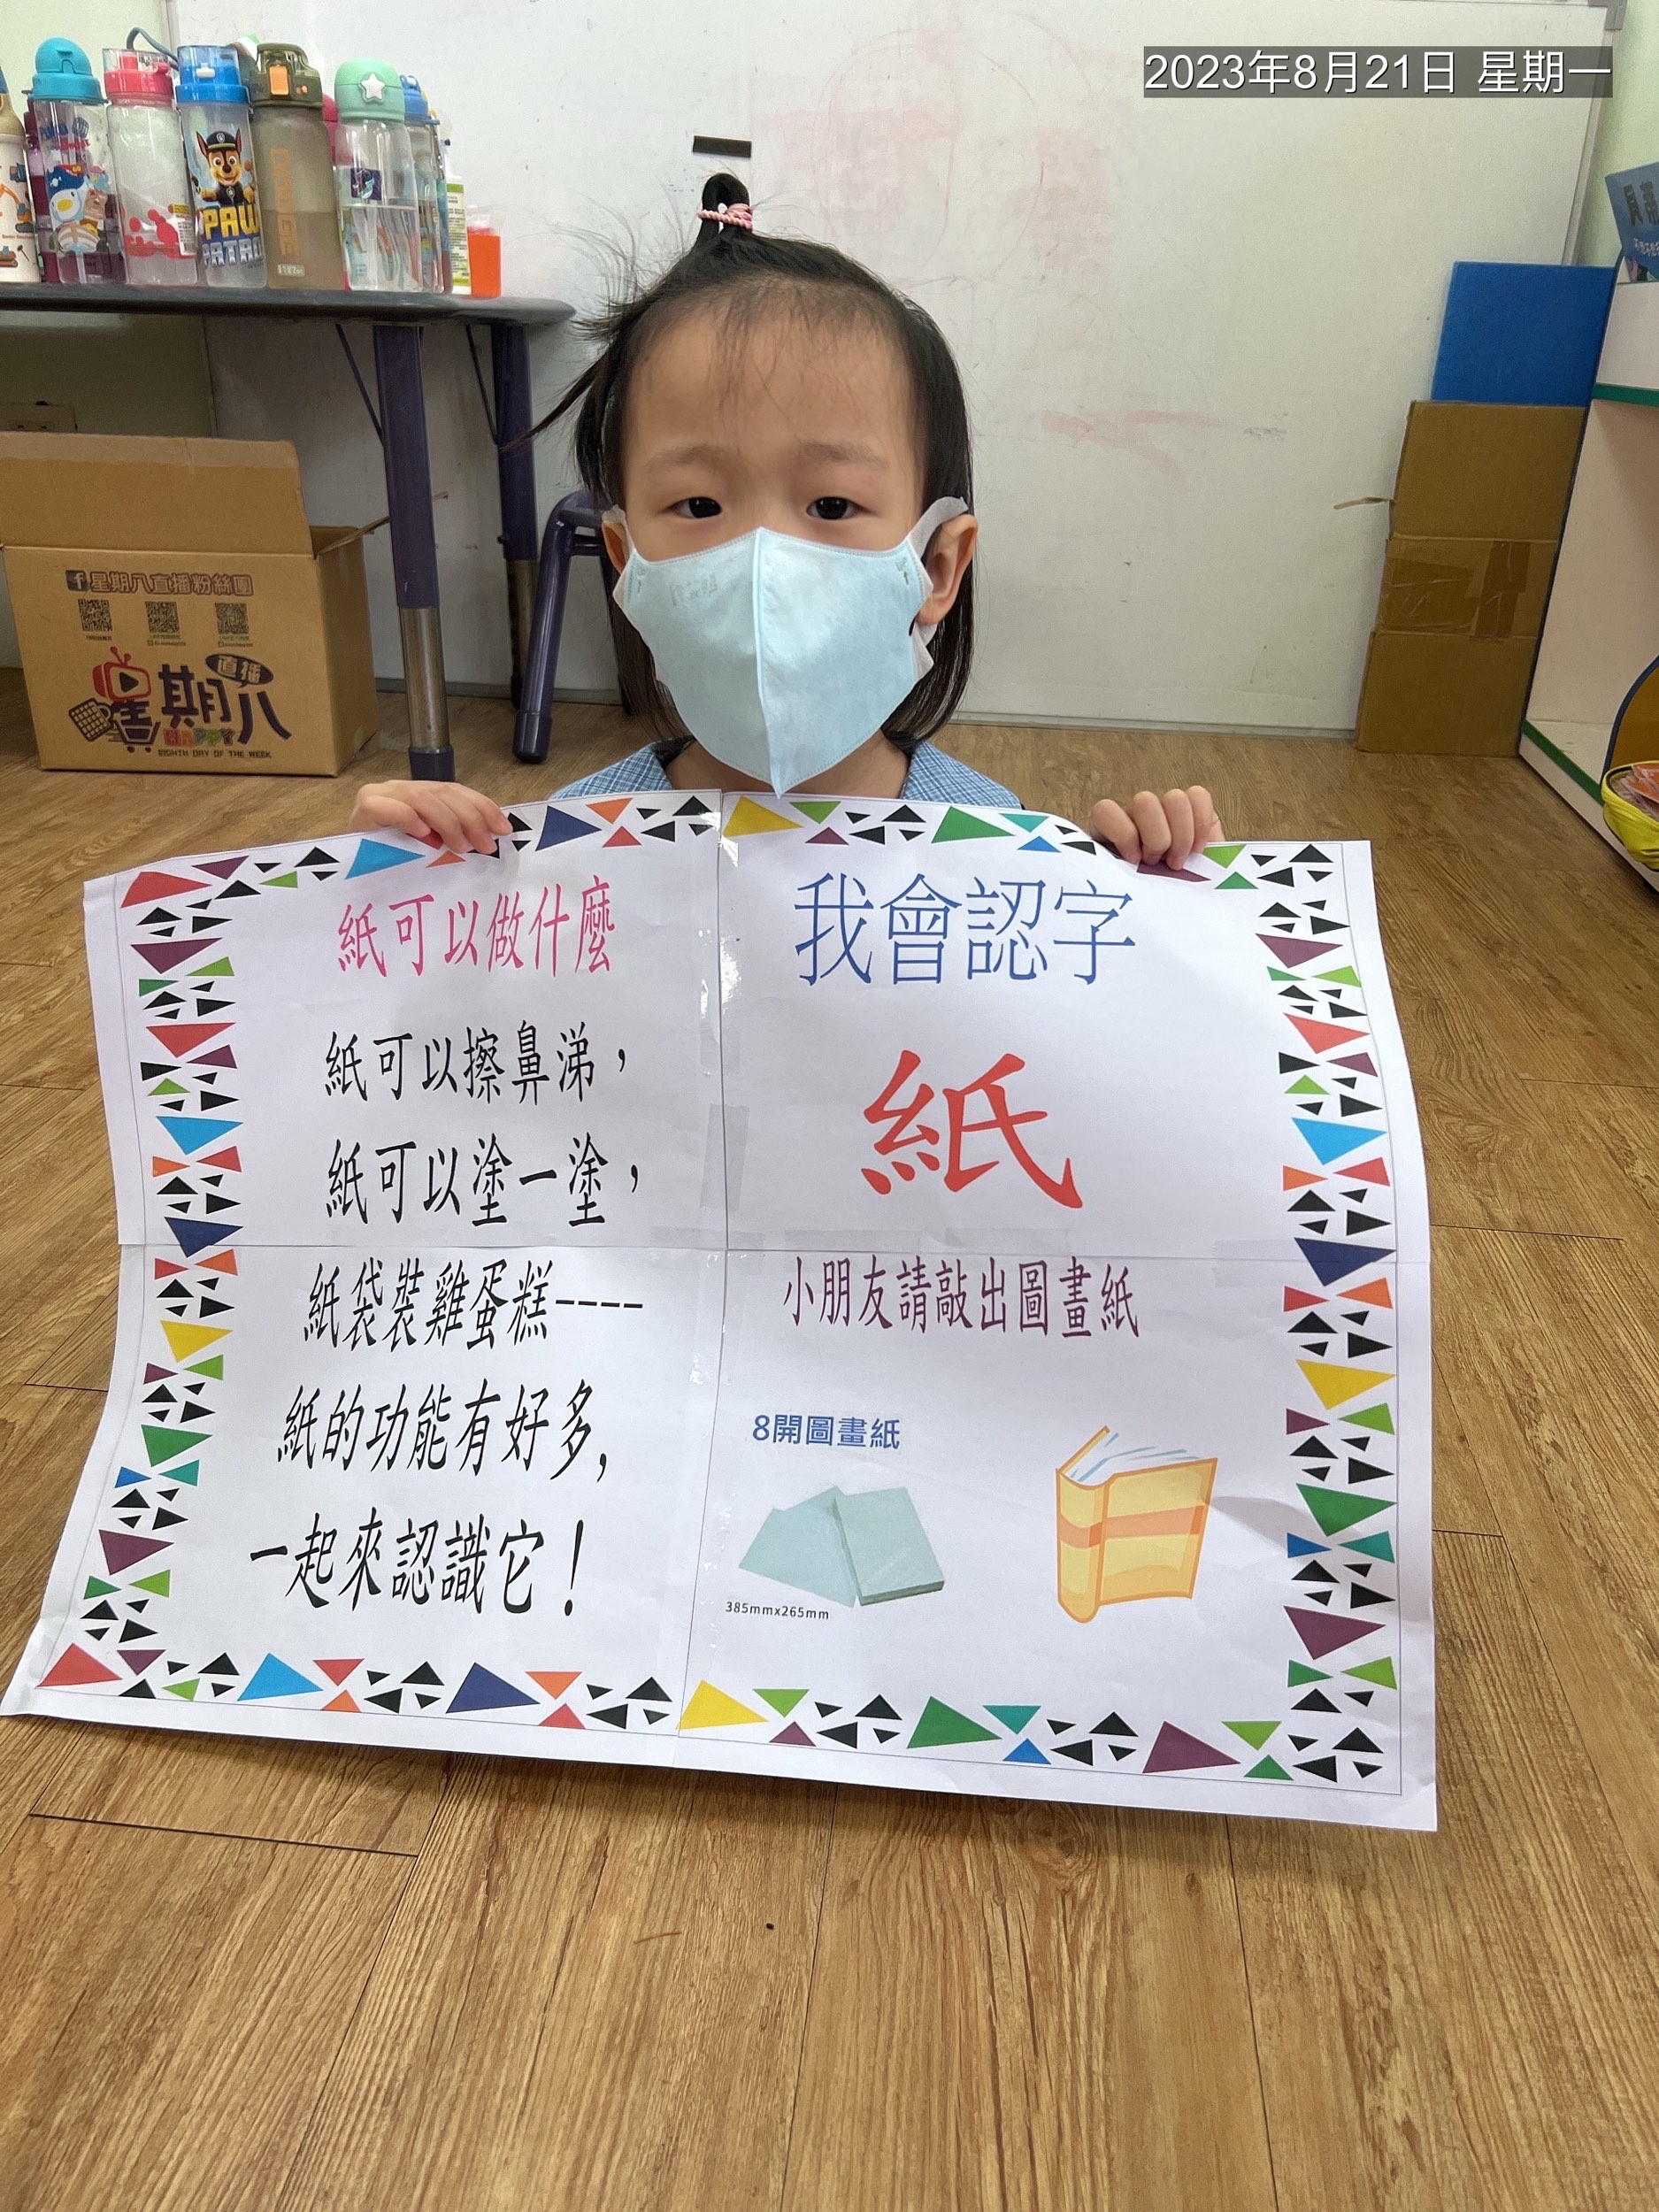 2023年8月21日 星期一
PAW
PATROL
星期八直播粉絲團
直播
星期八
HAPPY
EIGHTH DAY OF THE WEEK
紙可以做什麼
紙可以擦鼻涕，
紙可以塗一塗，
紙袋裝雞蛋糕----
紙的功能有好多,
一起來認識它！
我會認字
紙
小朋友請敲出圖畫紙
8開圖畫紙
385mmx265mm